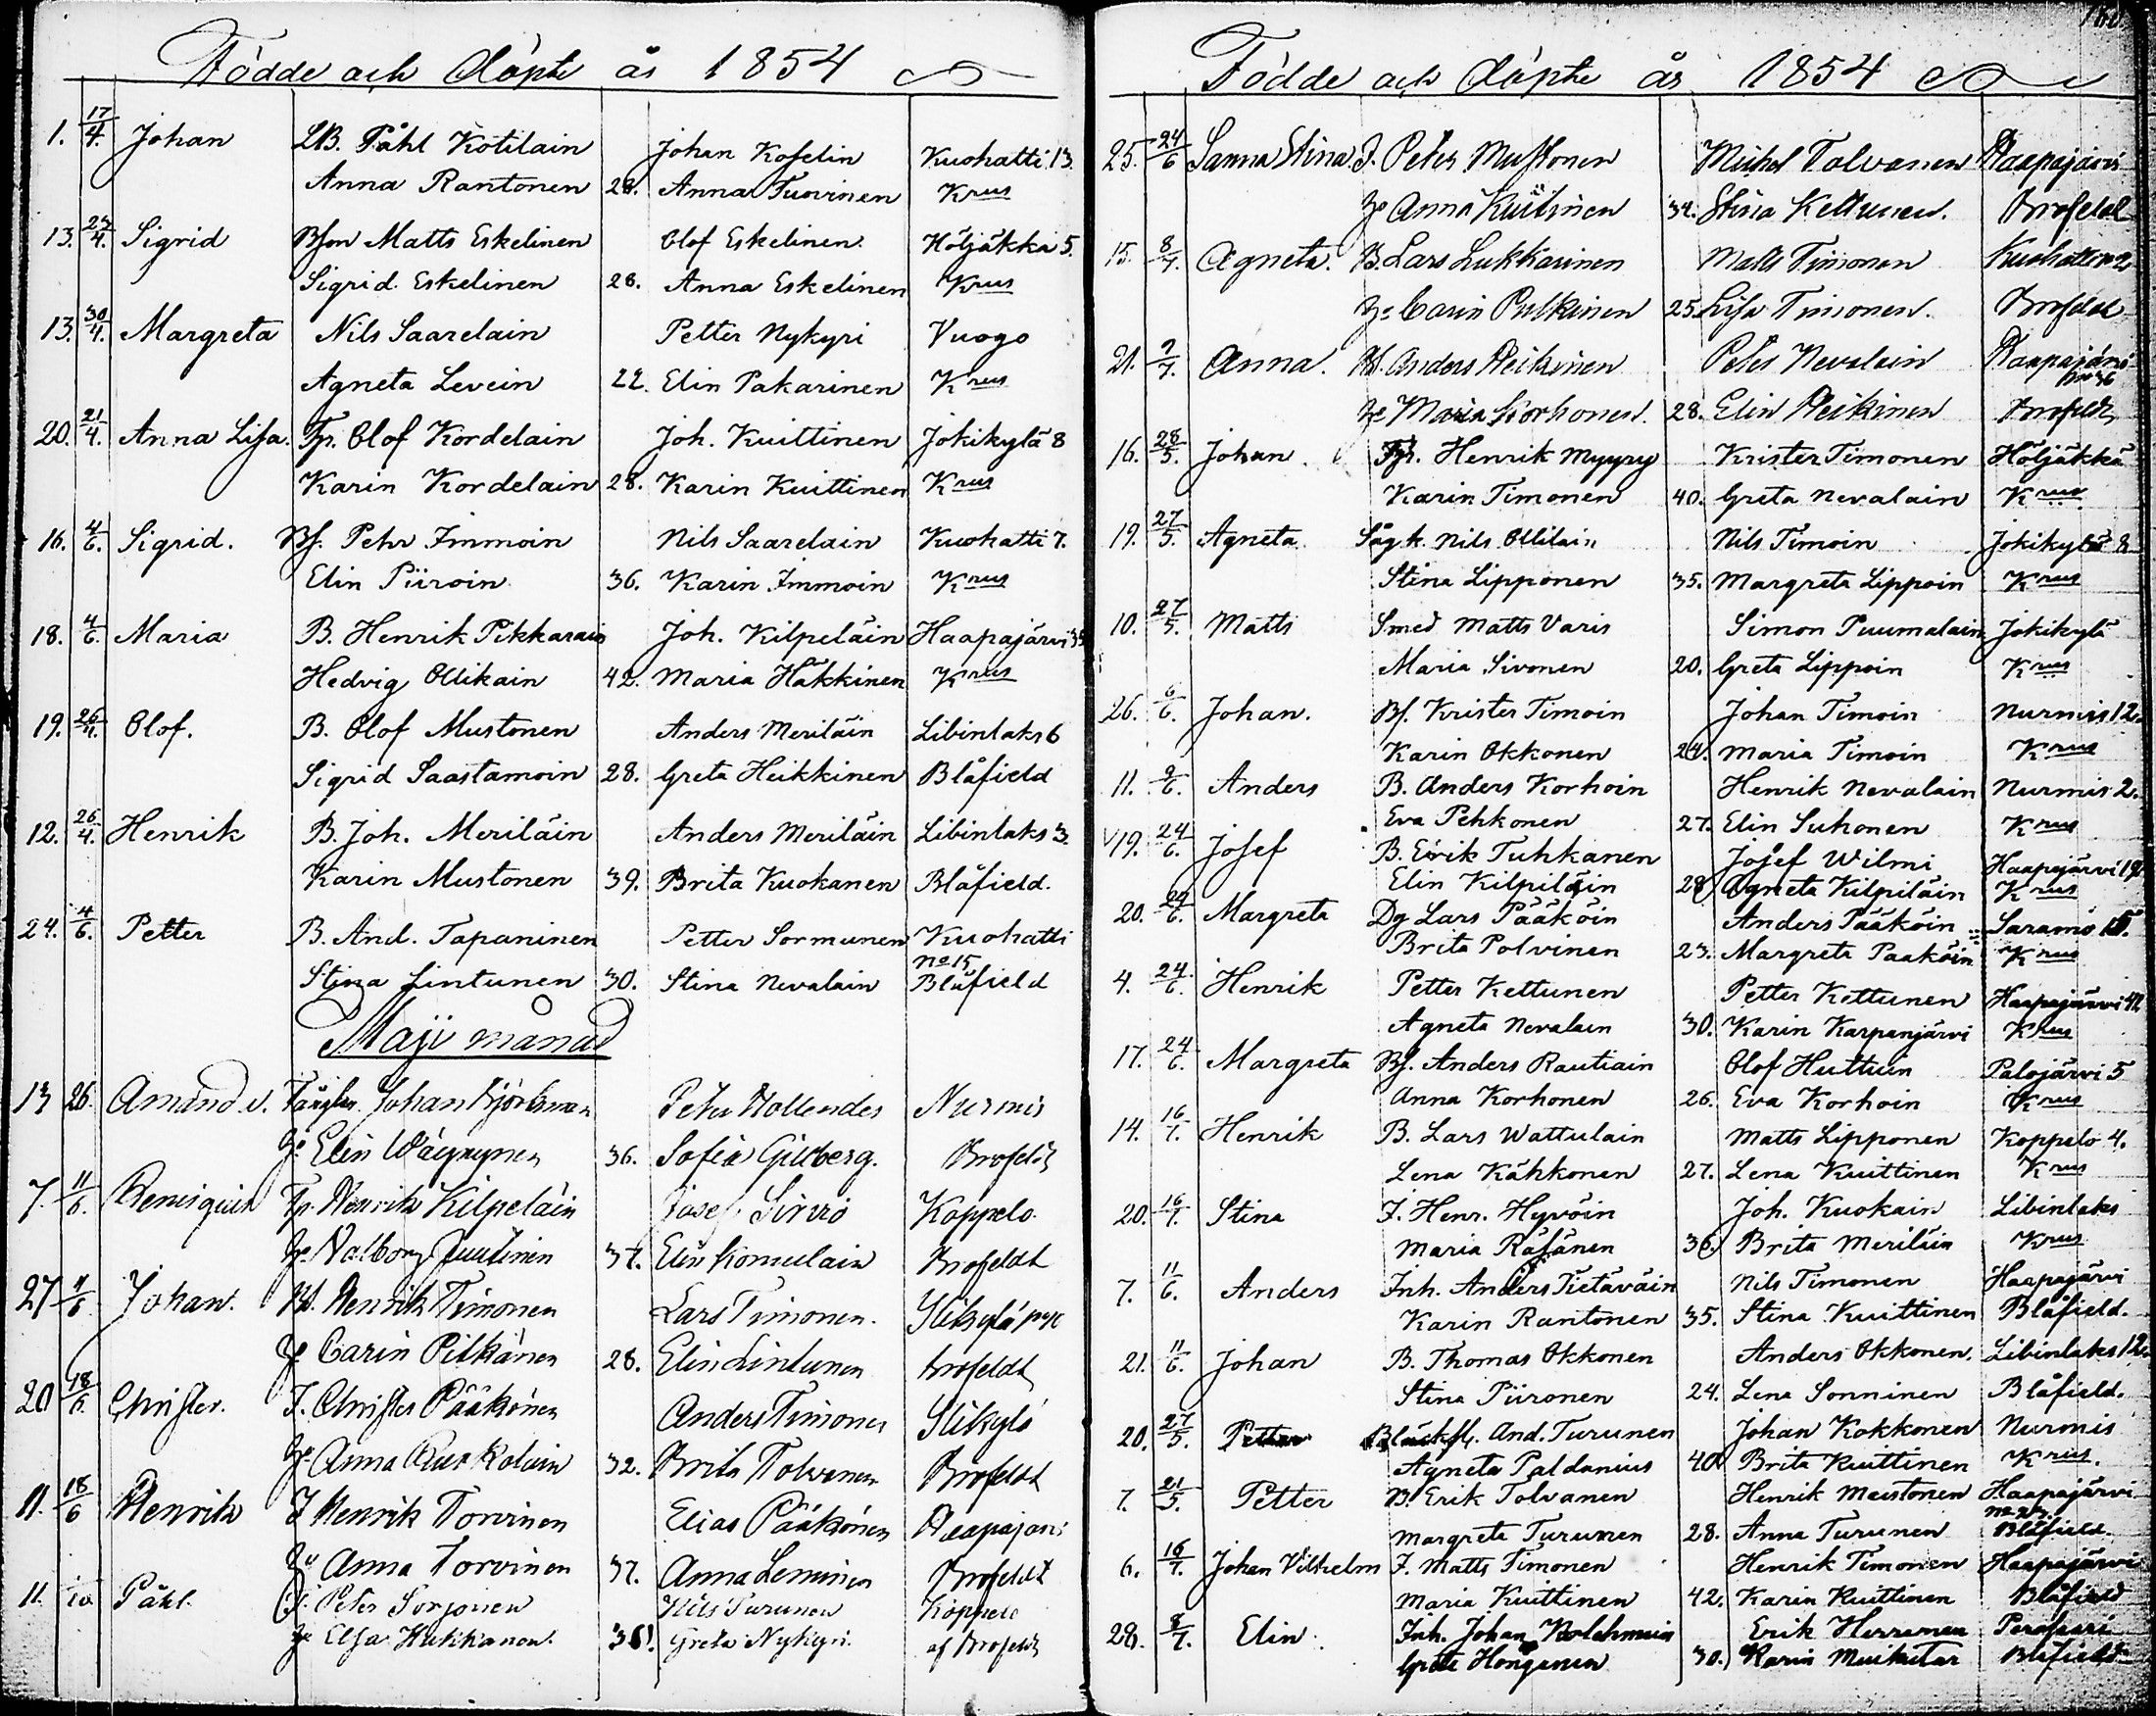 Födde och döpte år 1854
1. 17/4. Johan LB. Påhl Kotilain Johan Kofelin Kuohatti 13.
Anna Rantonen 28. Anna Tuovinen Krus
13. 23/4. Sigrid Bson Matts Eskelinen Olof Eskelinen Höljäkkä 5.
Sigrid Eskelinen 28. Anna Eskelinen Krus
13. 30/4. Margreta Nils Saarelain Petter Nykyri Vuogo
Agneta Levein 22. Elin Pakarinen Krus
20. 21/4. Anna Lisa. Tp. Olof Kordelain Joh. Kuittinen Jokikylä 8
Karin Kordelain 28. Karin Kuittinen Krus
16. 4/6. Sigrid. Bf. Pehr Immoin Nils Saarelain Kuohatti 7.
Elin Piiroin 36. Karin Immoin Krus
18. 4/6. Maria B. Henrik Pikkarain Joh. Kilpeläin Haapajärvi 35
Hedvig Ollikain 42. Maria Häkkinen Krus
19. 26/4. Olof. B. Olof Mustonen Anders Meriläin Libinlaks 6
Sigrid Saastamoin 28. Greta Heikkinen Blåfield
12. 26/4. Henrik B. Joh. Meriläin Anders Meriläin Libinlaks 3.
Karin Mustonen 39. Brita Kuokanen Blåfield.
24. 4/6. Petter B. And. Tapaninen Petter Sormunen Kuohatti
No 15
Stina Lintunen 30. Stina Nevalain Blåfield
Maji månad
13 26. Johan Björkman Peter Nurmis
he Elin Wäyrynen 36. Sofia Gilberg. Brofeldt
7. 11/6. Tp. Henrik Kilpeläin Josef Sirviö Koppelo
he Valborg Juutinen 37. Elin Komulain Brofeldt
27 11/6. Johan. Bd. Henrik Timonen Lars Timonen.
he Carin Pitkänen 28. Elin Lintunen Brofeldt
20 18/6. Christer. I. Christer Pääkönen Anders Timonen
he Anna 32. Brita Tolvanen Brofeldt
11. 18/6 Henrik I Henrik Torvinen Elias Pääkönen Haapajärvi
he Anna Torvinen 37. Anna Leminen Brofeldt
11. Påhl. I. Peter Sorjonen Nils Turunen Koppelo
he Elsa Hukkanen. 36. Greta Nykyri. af Brofeldt
Födde och döpte år 1854
25. 24/6 Sanna Stina I. Peter Mustonen Michel Tolvanen Haapajärvi
he Anna Kuitinen 34. Stina Kettunen. Brofeldt
15. 8/7. Agneta. B. Lars Lukkarinen Matts Timonen Kuohatti n 2
he Carin Pulkinen 25. Lisa Timonen. Brofeldt
21. 9/7. Anna. Bd. Anders Heikinen Peter Nevalain Haapajärvi
No 36
he Maria Korhonen. 28. Elin Heikinen Brofeldt
16. 28/5. Johan. Tp. Henrik Myyry Krister Timonen Höljäkkä
Karin Timonen 40. Greta Nevalain Krus
19. 27/5. Agneta. Såg.k. Nils Ollilain Nils Timoin Jokikylä 8
Stina Lipponen 35. Margreta Lippoin Krus
10. 27/5. Matts Smed Matts Varis Simon Puumalain Jokikylä
Maria Sivonen 20. Greta Lippoin Krus
26. 6/6. Johan. Bf. Krister Timoin Johan Timoin Nurmis 12.
Karin Okkonen 24. Maria Timoin Krus
11. 9/6. Anders B. Anders Korhoin Henrik Nevalain Nurmis 2.
Eva Pehkonen 27. Elin Suhonen Krus
19. 24/6. Josef B. Eirik Tuhkanen Josef Wilmi Haapajärvi 19.
Elin Kilpiläin 28 Agneta Kilpiläin Krus
20. 29/6. Margreta Dg Lars Pääköin Anders Pääköin Saramo 15.
Brita Polvinen 23. Margreta Paaköin Krus
4. 24/6. Henrik Petter Kettunen Petter Kettunen Haapajärvi 42
Agneta Nevalain 30. Karin Karpanjärvi Krus
17. 24/6. Margreta Bf. Anders Rautiain Olof Huttuin Palojärvi 5
Anna Korhonen 26. Eva Korhoin Krus
14. 16/7. Henrik B. Lars Wattulain Matts Lipponen Koppelo 4.
Lena Kähkonen 27. Lena Kuittinen Krus
20. 16/7. Stina I. Henr. Hyvöin Joh. Kuokain Libinlaks
Maria Räsänen 36. Brita Meriläin Krus
7. 11/6. Anders Inh. Anders Tietäväin Nils Timonen Haapajärvi
Karin Rantonen 35. Stina Kuittinen Blåfield.
21. 11/6. Johan B. Thomas Okkonen Anders Okkonen. Libinlaks 12.
Stina Piironen 24. Lena Sonninen Blåfield.
20. 27/5. Petter And. Turunen Johan Kokkonen Nurmis
Agneta Paldanius 40 Brita Kuittinen Krus.
7. 21/5. Petter B. Erik Tolvanen Henrik Mustonen Haapajärvi
Margreta Turunen 28. Anna Turunen Blåfield.
6. 16/7. Johan Vilhelm I. Matts Timonen Henrik Timonen Haapajärvi
Maria Kuittinen 42. Karin Kuittinen Blåfield
28. 8/7. Elin. Inh. Johan Kolehmain Erik Herranen
Greta Honganen 30. Karin Blåfield